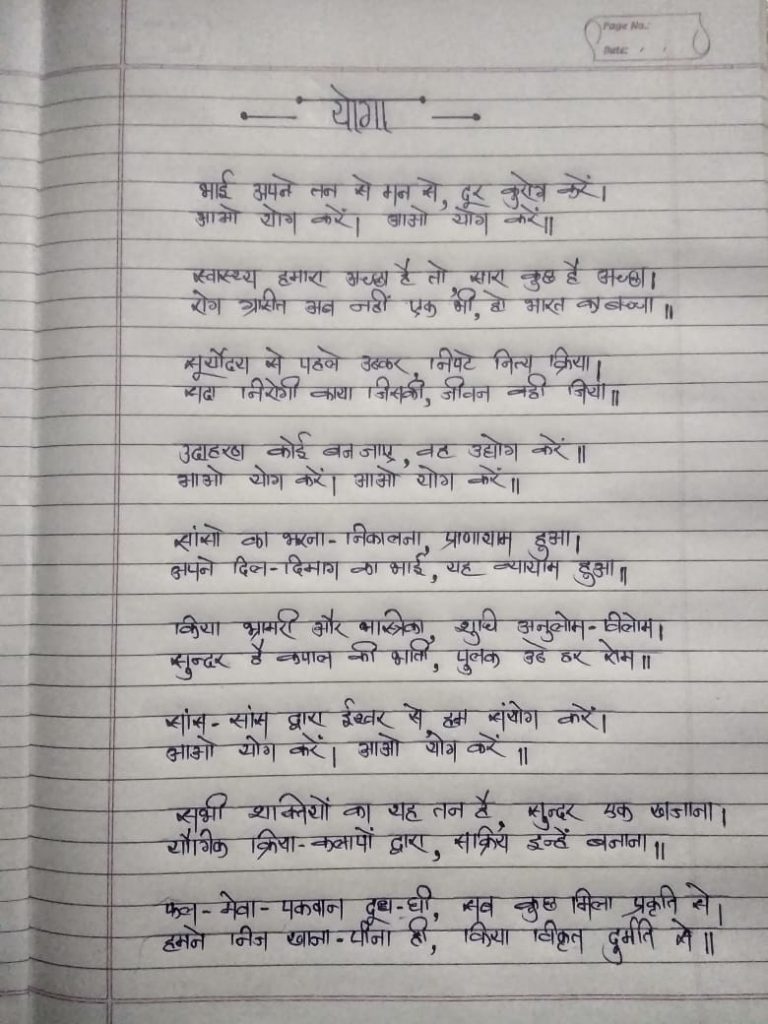 Page No.:
Date:
योगा
भाई अपने तन से मन से, दूर कुरोग करें।
आओ योग करें। आओ योग करें॥
स्वास्थ्य हमारा अच्छा है तो, सारा कुछ है अच्छा।
रोग ग्रसित अब नहीं एक भी, हो भारत का बच्चा॥
सूर्योदय से पहले उठकर, निपटे नित्य क्रिया।
सदा निरोगी काया जिसकी, जीवन वही जिया॥
उदाहरण कोई बन जाए, वह उद्योग करें॥
आओ योग करें। आओ योग करें॥
सांसो का भरना-निकालना, प्राणायाम हुआ।
अपने दिल-दिमाग का भाई, यह व्यायाम हुआ॥
किया भ्रामरी और भास्त्रिका, शुचि अनुलोम-विलोम।
सुन्दर है कपाल की भाति, पुलक उठे हर रोम॥
सांस-सांस द्वारा ईश्वर से, हम संयोग करें।
आओ योग करें। आओ योग करें॥
सभी शक्तियों का यह तन है, सुन्दर एक खजाना।
यौगिक क्रिया-कलापों द्वारा, सक्रिय इन्हें बनाना॥
फल-मेवा-पकवान दूध-घी, सब कुछ मिला प्रकृति से।
हमने निज खाना-पीना ही, किया विकृत दुर्मति से॥